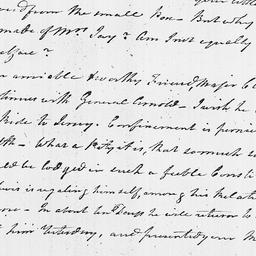 from the small Pox - But why
made of Mrs Jay? Am I not equally
welfare?
amiable & worthy Friend, Major C
continues with General Arnold - I wish he
Ride to Jersey. Confinement is pernici
- What a Pity it is, that so much
be lodged in such a feeble Consti
is regaling himself, among his Relatio
- In about ten Days he will return to
him Yesterday, and presented your